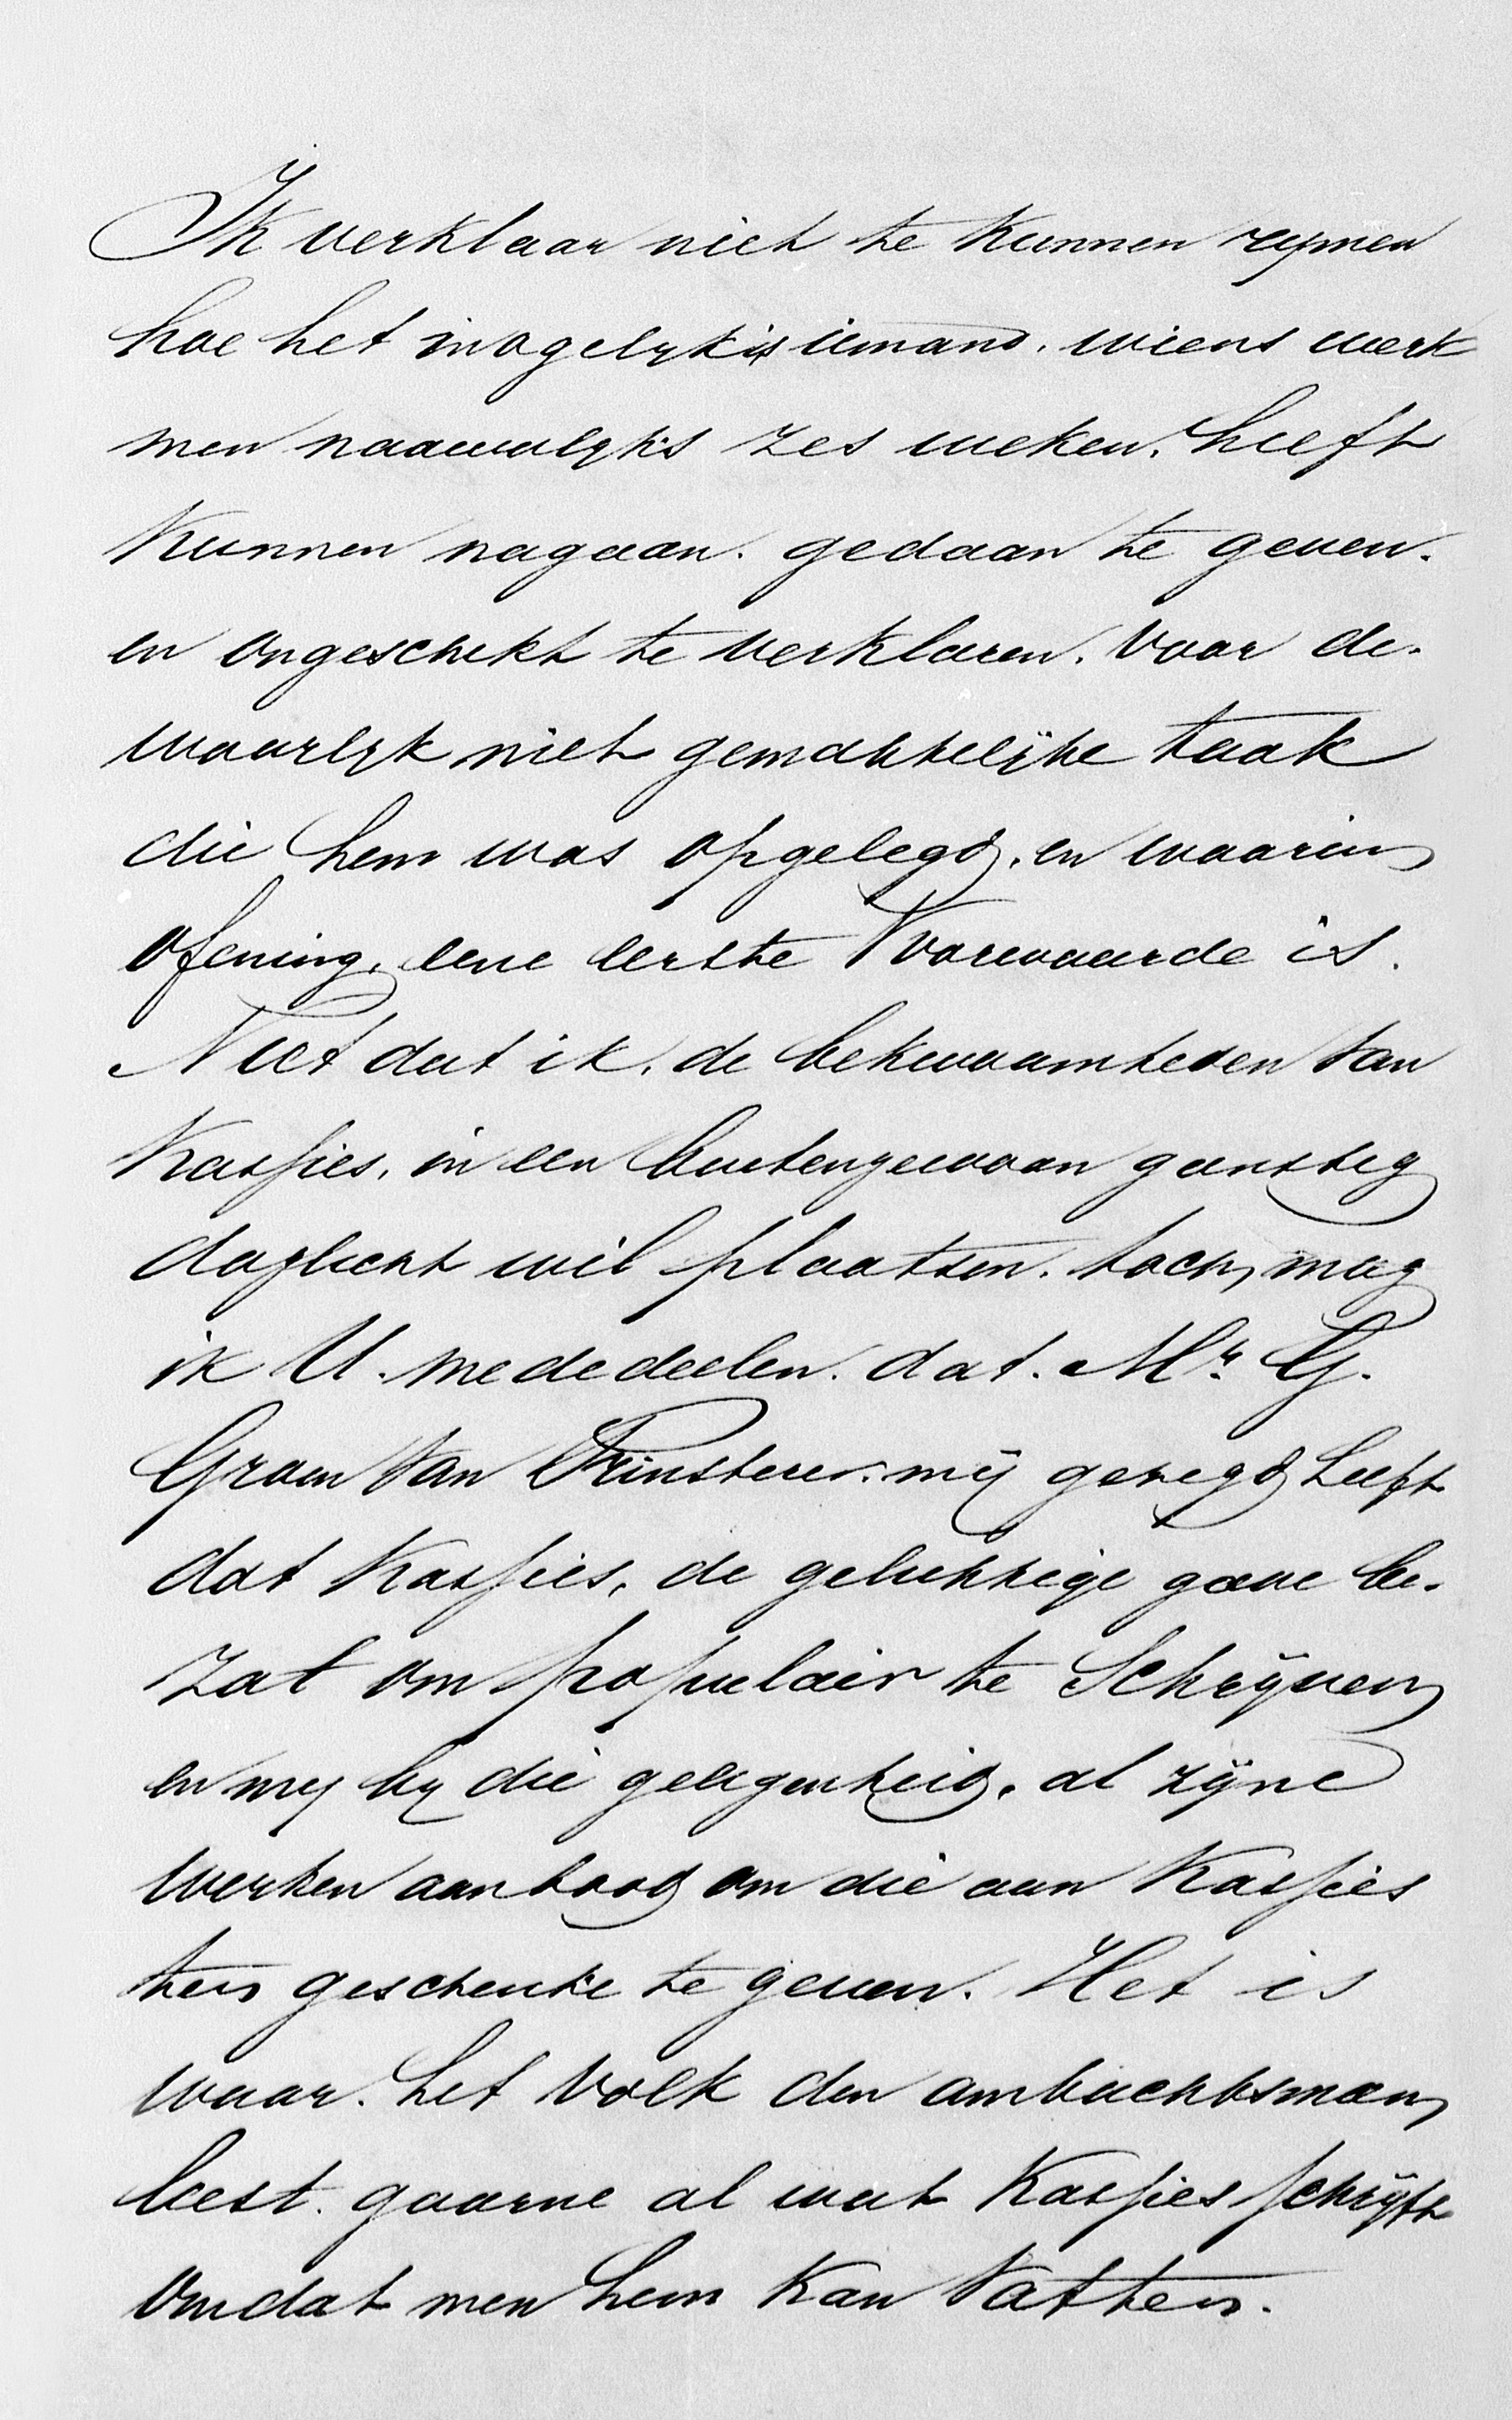 Ik verklaar niet te kunnen rymen
hoe het mogelyk is iemand, wiens werk
men naauwelyks zes weken, heeft
kunnen nagaan, gedaan te geven.
en ongeschikt te verklaren, voor de.
waarlyk niet gemakkelijke taak
die hem was opgelegd, en waarin
ofening, eene eerste Voorwaarde is.
Niet dat ik, de bekwaamheden van
Kasjies, in een buitengewoon gunstig
daglicht wil plaatsen, toch, mag
ik U. mededeelen. dat. Mr. G.
Groen van Prinsterer. mij gezegd heeft
dat Kasjies, de gelukkige gave be-
zat om populair te Schrijven
en my by die gelegenheid, al zijne
werken aanbood om die aan Kasjies
ten geschenke te geven. Het is
waar. het volk den ambachtsman,
leest. gaarne al wat Kasjies schrijft
omdat men hem kan vatten.